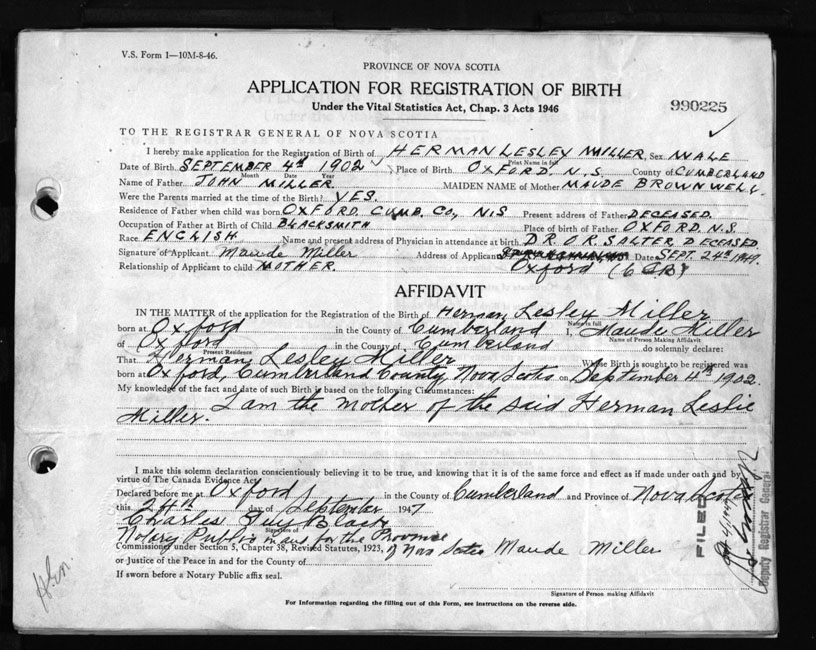 V.S. Form 1—10M-8-46.
PROVINCE OF NOVA SCOTIA
APPLICATION FOR REGISTRATION OF BIRTH
Under the Vital Statistics Act, Chap. 3 Acts 1946
990225
TO THE REGISTRAR GENERAL OF NOVA SCOTIA
I hereby make application for the Registration of Birth of HERMAN LESLEY MILLER, Sex MALE
Print Name in full
Date of Birth SEPTEMBER 4th 1902 Place of Birth OXFORD. N.S. County of CUMBERLAND
Month Date Year
Name of Father JOHN MILLER MAIDEN NAME of Mother MAUDE BROWNWELL.
Were the Parents married at the time of the Birth? YES.
Residence of Father when child was born OXFORD. CUMB. CO, N.S Present address of Father DECEASED.
Occupation of Father at Birth of Child BLACKSMITH Place of birth of Father OXFORD. N.S.
Race ENGLISH Name and present address of Physician in attendance at birth DR. O.R. SALTER DECEASED.
Signature of Applicant Maude Miller Address of Applicant Date SEPT. 24th 1947.
Relationship of Applicant to child MOTHER. Oxford
AFFIDAVIT
IN THE MATTER of the application for the Registration of the Birth of Herman Lesley Miller
Name in full
born at Oxford in the County of Cumberland I, Maude Miller
Name of Person Making Affidavit
of Oxford in the County of Cumberland do solemnly declare:
Present Residence
That Herman Lesley Miller Whose Birth is sought to be registered was
born at Oxford, Cumberland County, Nova Scotia on September 4th 1902.
My knowledge of the fact and date of such Birth is based on the following Circumstances:
I am the mother of the said Herman Leslie
Miller.
I make this solemn declaration conscientiously believing it to be true, and knowing that it is of the same force and effect as if made under oath and by
virtue of The Canada Evidence Act.
Declared before me at Oxford in the County of Cumberland and Province of Nova Scotia
this 24th day of September 1947
Charles Guy Black
Signature of
Notary Public in and for the Province
Commissioned under Section 5, Chapter 38, Revised Statutes, 1923, of Nova Scotia Maude Miller
or Justice of the Peace in and for the County of
If sworn before a Notary Public affix seal.
Signature of Person making Affidavit
For Information regarding the filling out of this Form, see instructions on the reverse side.
FILED
Deputy Registrar General